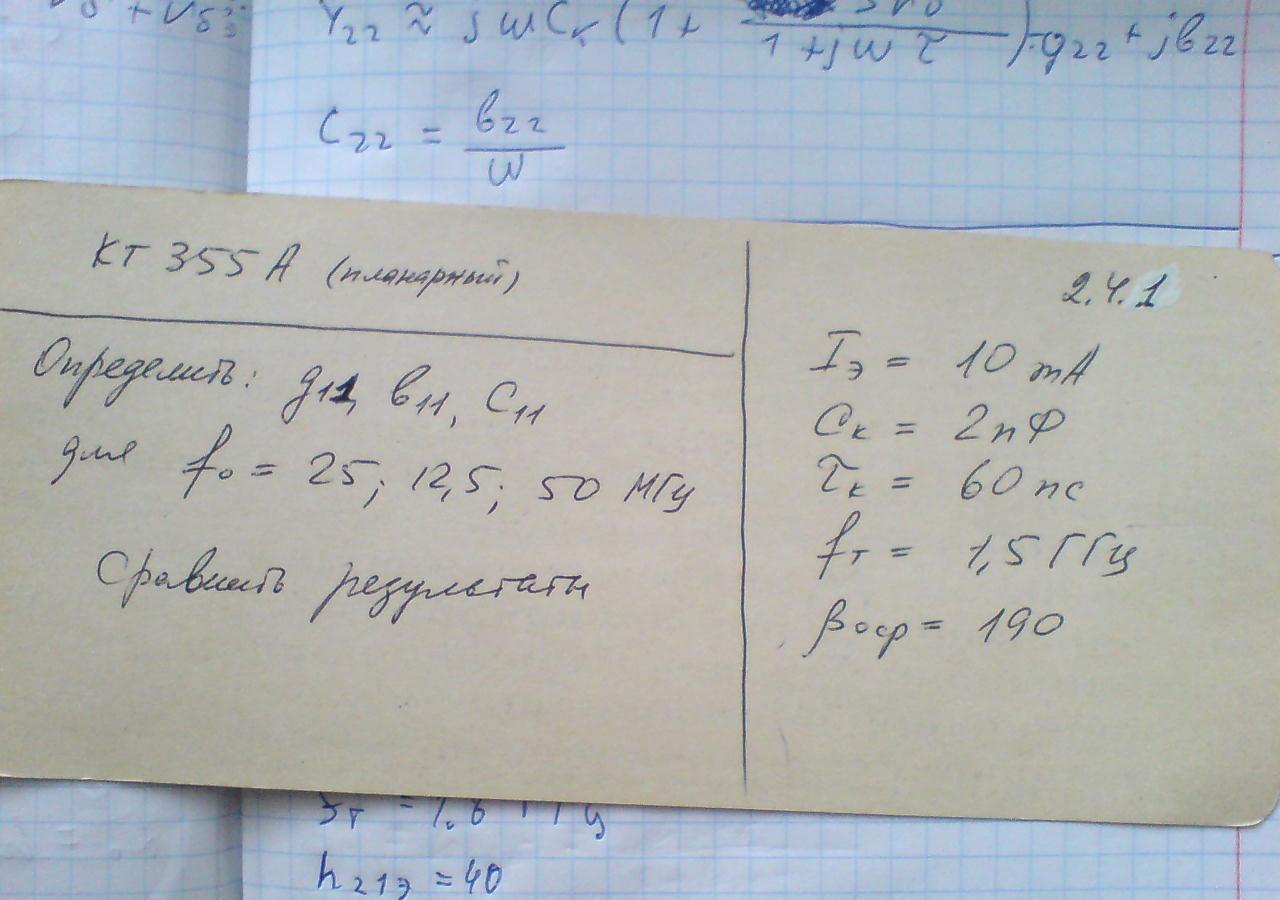 Y₂₂ ≈ jωCₖ(1 + / 1 + jωτ) = g₂₂ + jв₂₂
C₂₂ = в₂₂ / ω
КТ 355 А (планарный)
Определить: g₁₁, в₁₁, C₁₁
для f₀ = 25; 12,5; 50 МГц
Сравнить результаты
2.4.1
Iэ = 10 mA
Cк = 2 пФ
τк = 60 пс
fт = 1,5 ГГц
βоср = 190
h₂₁э = 40